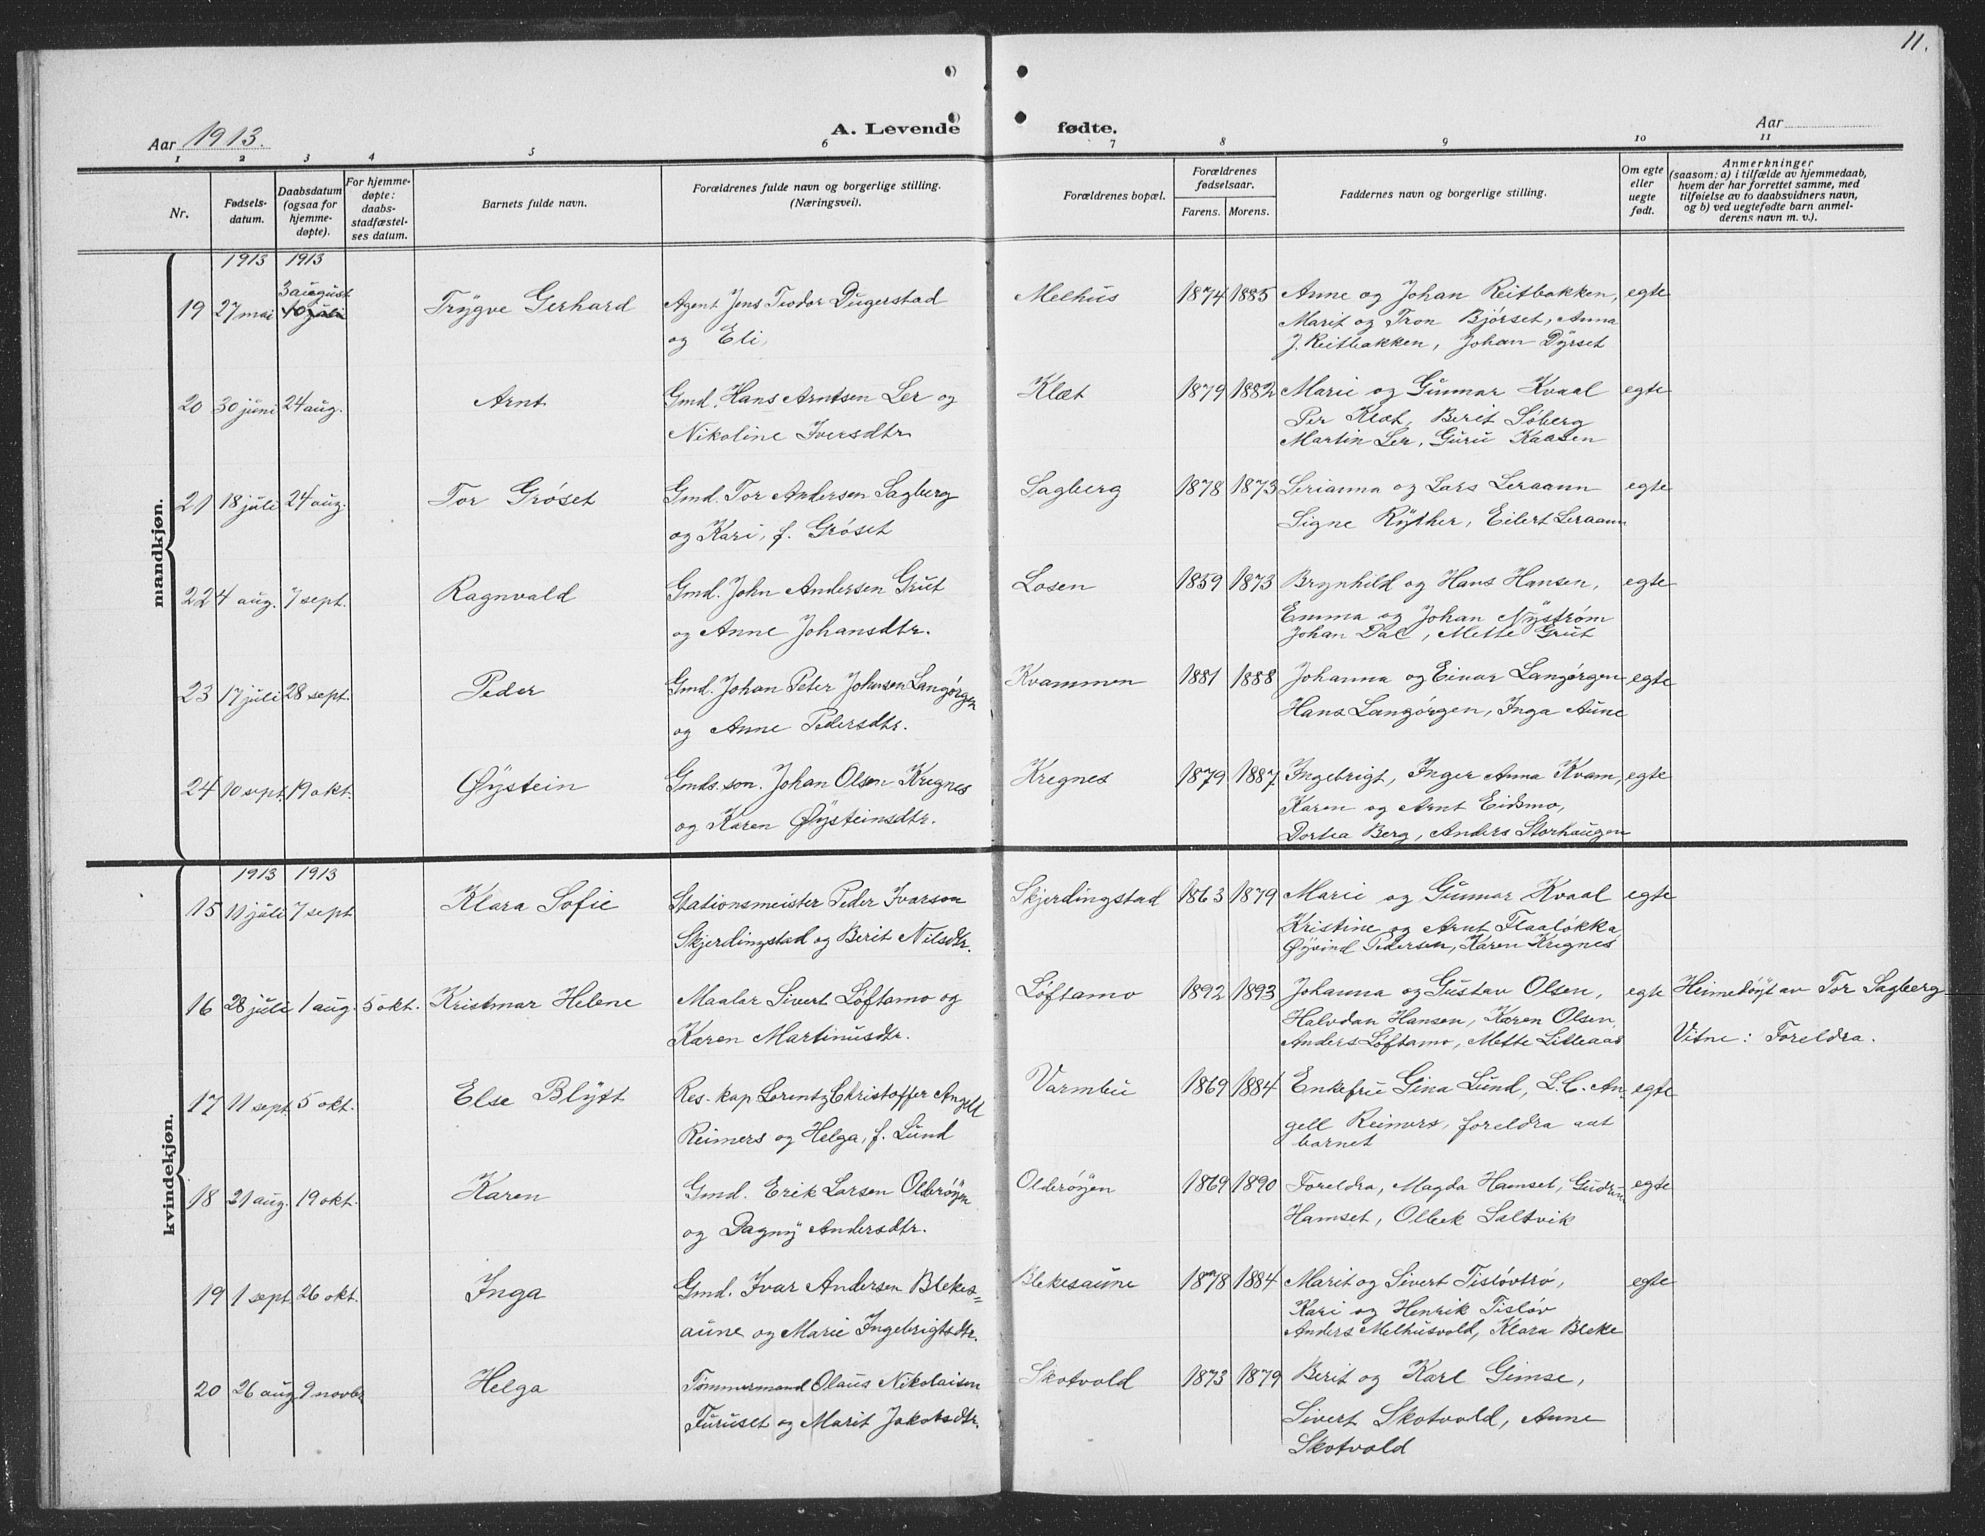 11.
Aar 1913.
A. Levende fødte.
Aar
1 2 3 4 5 6 7 8 9 10 11
Nr.
Fødsels-
datum.
Daabsdatum
(ogsaa for
hjemme-
døpte).
For hjemme-
døpte:
daabs-
stadfæstel-
ses datum.
Barnets fulde navn.
Forældrenes fulde navn og borgerlige stilling.
(Næringsvei).
Forældrenes bopæl.
Forældrenes
fødselsaar.
Farens. Morens.
Faddernes navn og borgerlige stilling.
Om egte
eller
uegte
født.
Anmerkninger
(saasom: a) i tilfælde av hjemmedaab,
hvem der har forrettet samme, med
tilføielse av to daabsvidners navn,
og b) ved uegtefødte barn anmel-
derens navn m. v.).
mandkjøn.
1913 1913
3 august
19 27 mai 10 juli Trygve Gerhard Agent Jens Teodor Dugerstad Melhus 1874 1885 Anne og Johan Reitbakken, egte
og Eli, Marit og Tron Bjørset, Anna
J. Reitbakken, Johan Dyrset
20 30 juni 24 aug. Arnt Gmd. Hans Arntsen Ler og Klæt 1879 1882 Marie og Gunnar Kvaal egte
Nikoline Iversdtr. Per Klæt, Berit Søberg
Martin Ler, Guru Kaasen
21 18 juli 24 aug. Tor Grøset Gmd. Tor Andersen Sagberg Sagberg 1878 1873 Serianna og Lars Leraann egte
og Kari, f. Grøset Signe Ryther, Eilert Leraann
22 4 aug. 7 sept. Ragnvald Gmd. John Andersen Grut Losen 1859 1873 Brynhild og Hans Hansen, egte
og Anne Johansdtr. Emma og Johan Nystrøm
Johan Dal, Mette Grut
23 17 juli 28 sept. Peder Gmd. Johan Peter Johnsen Langørgen Kvammen 1881 1888 Johanna og Einar Langørgen egte
og Anne Pedersdtr. Hans Langørgen, Inga Aune
24 10 sept. 19 okt. Øystein Gmds. son. Johan Olsen Kregnes Kregnes 1879 1887 Ingebrigt, Inger Anna Kvam, egte
og Karen Øysteinsdtr. Karen og Arnt Eidsmo,
Dortea Berg, Anders Storhaugen
kvindekjøn.
1913 1913
15 11 juli 7 sept Klara Sofie Stationsmeister Peder Ivarson Skjerdingstad 1863 1879 Marie og Gunnar Kvaal egte
Skjerdingstad og Berit Nilsdtr. Kristine og Arnt Flaaløkka
Øyvind Pedersen, Karen Kregnes
16 28 juli 1 aug. 5 okt. Kristmar Helene Maalar Sivert Løftamo og Løftamo 1892 1893 Johanna og Gustav Olsen, egte Heimedøypt av Tor Sagberg
Karen Martinusdtr. Halvdan Hansen, Karen Olsen, Vitne: Foreldra.
Anders Løftamo, Mette Lilleaas
17 11 sept 5 okt. Else Blytt Res. kap Lorentz Christoffer Angell Varmbu 1869 1884 Enkefru Gina Lund, L.C. An- egte
Reimers og Helga, f. Lund gell Reimers, foreldra aat
barnet
18 21 aug. 19 okt. Karen Gmd. Erik Larsen Olderøyen Olderøyen 1869 1890 Foreldra, Magda Hamset, Gudrun egte
og Dagny Andersdtr. Hamset, Olbek Saltvik
19 1 sept 26 okt. Inga Gmd. Ivar Andersen Blekes= Blekesaune 1878 1884 Marit og Sivert Tisløvtrø, egte
aune og Marie Ingebrigtsdtr. Kari og Henrik Tisløv
Anders Melhusvold, Klara Bleke
20 26 aug 9 novbr Helga Tømmermand Olaus Nikolaisen Skotvold 1873 1879 Berit og Karl Gimse,
Furuset og Marit Jakobsdtr. Sivert Skotvold, Anne
Skotvold